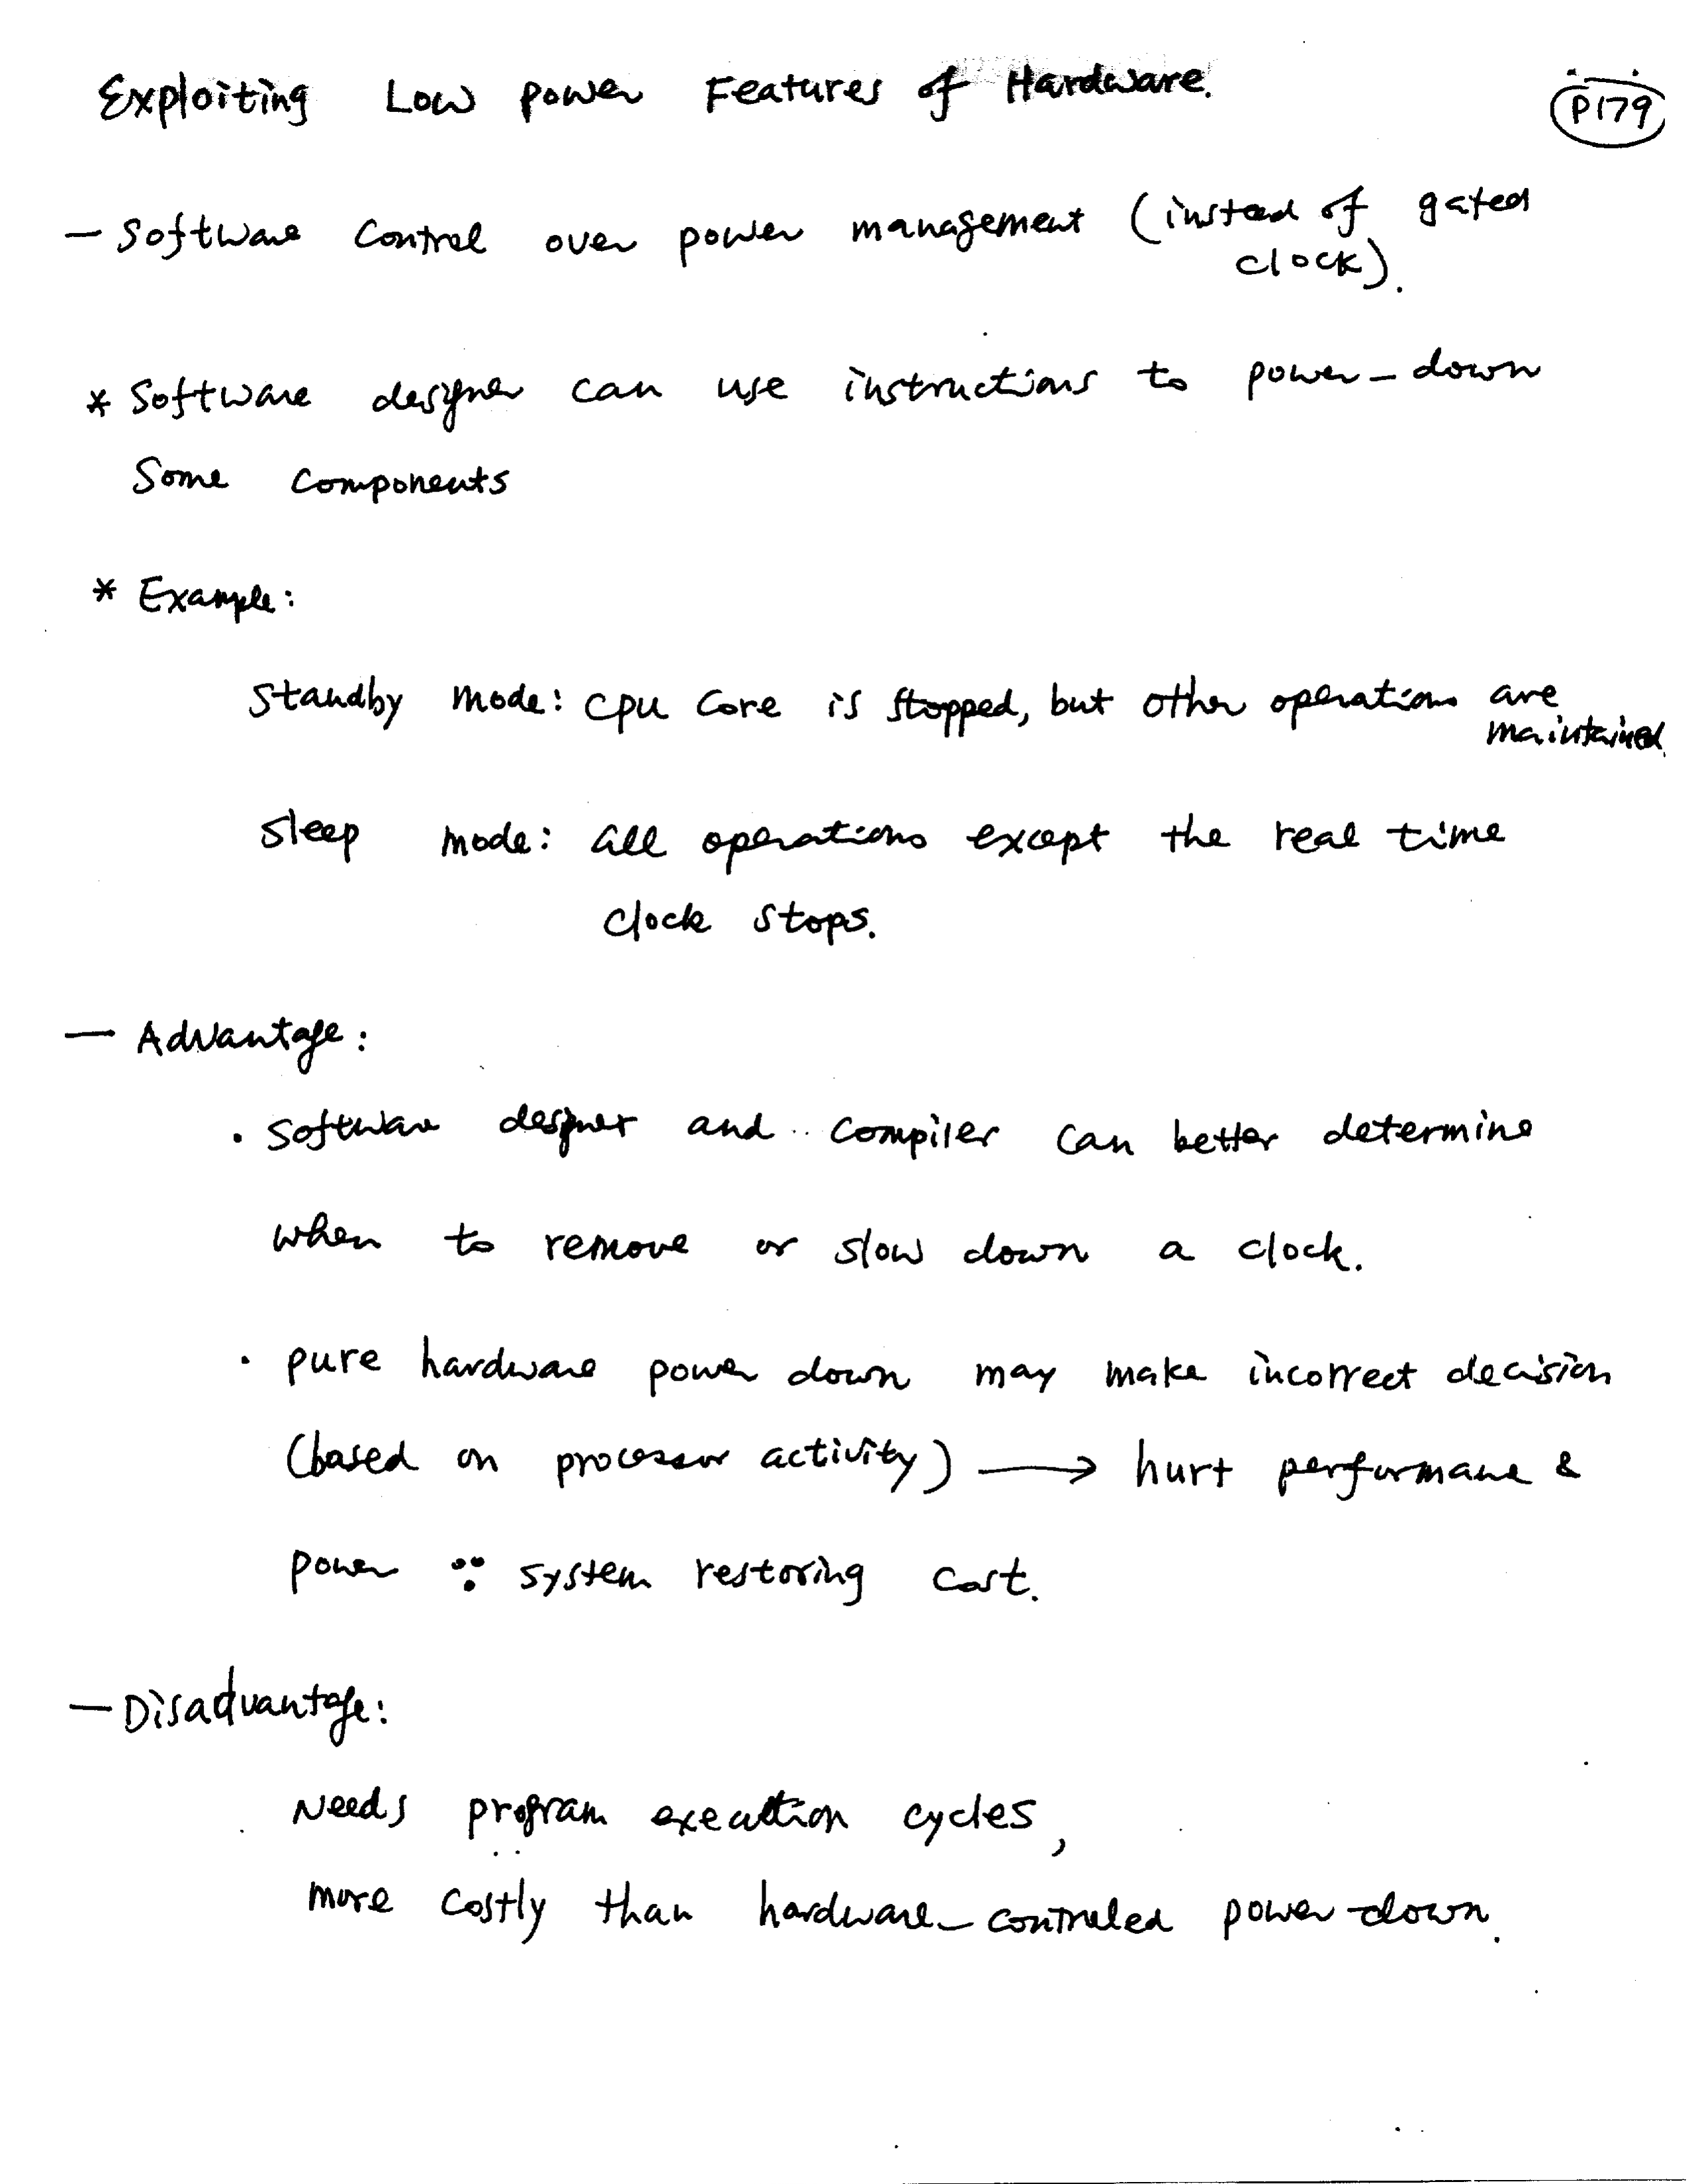 Exploiting Low power Features of Hardware.
P179
— Software control over power management (instead of gated
clock).
* Software designer can use instructions to power-down
Some components
* Example:
Standby mode: CPU core is stopped, but other operations are
maintained.
Sleep mode: all operations except the real time
clock stops.
— Advantage:
· Software designer and compiler can better determine
when to remove or slow down a clock.
· pure hardware power down may make incorrect decision
(based on processor activity) ⟶ hurt performance &
power ∵ system restoring cost.
— Disadvantage:
Needs program execution cycles,
more costly than hardware-controled power-down.